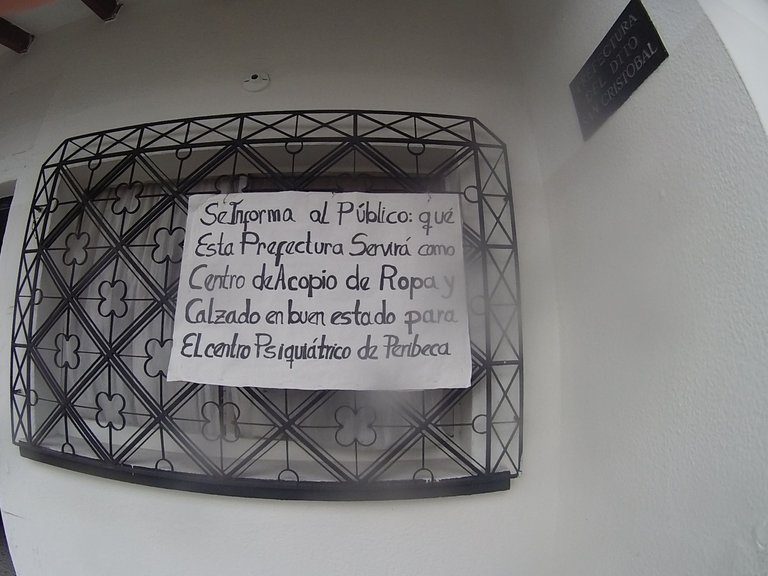 Se Informa al Público: qué
Esta Prefectura Servirá como
Centro de Acopio de Ropa y
Calzado en buen estado para
El centro Psiquiátrico de Peribeca
PREFECTURA
DEL DTTO
SAN CRISTOBAL